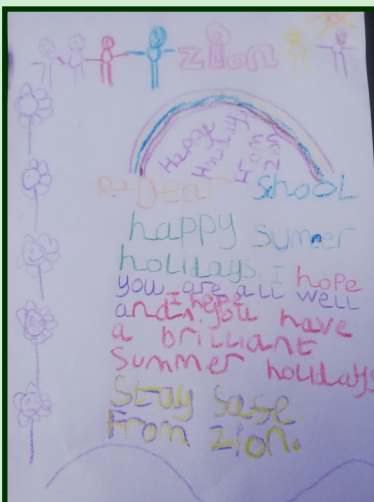 zion
Happy
Holidays
From
Zion
Dear School
happy sumer
holidays. I hope
you are all well
and I hope you have
a brilliant
Summer holidays
Stay Safe.
From Zion.